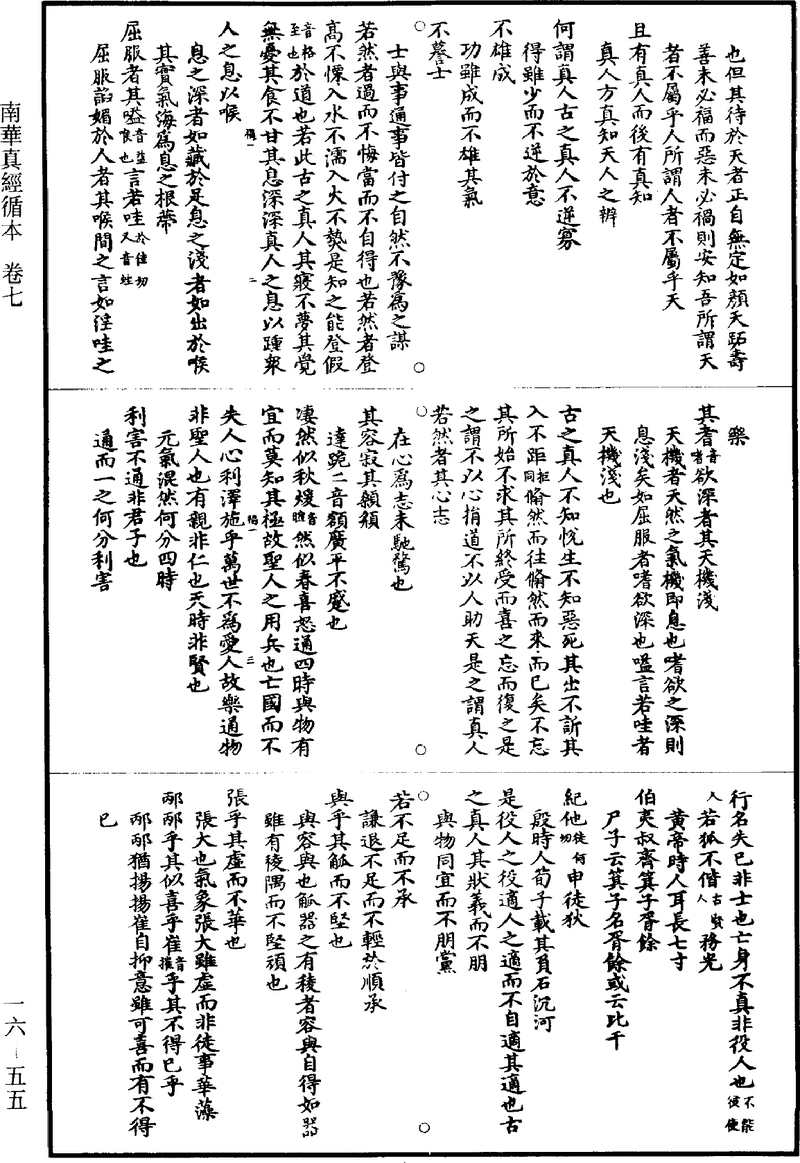 南華真經循本　卷七
一六－五五
也但其待於天者正自無定如顏夭跖壽
善未必福而惡未必禍則安知吾所謂天
者不屬乎人所謂人者不屬乎天
且有真人而後有真知
真人方真知天人之辨
何謂真人古之真人不逆寡
得雖少而不逆於意
不雄成
功雖成而不雄其氣
不謩士
士與事通事皆付之自然不豫為之謀
若然者過而不悔當而不自得也若然者登
高不慄入水不濡入火不熱是知之能登假
音格至也於道也若此古之真人其寢不夢其覺
無憂其食不甘其息深深真人之息以踵衆
人之息以喉
息之深者如藏於足息之淺者如出於喉
其實氣海為息之根蔕
屈服者其嗌音益言若哇於佳切又音蛙
屈服諂媚於人者其喉間之言如淫哇之
樂
其耆音嗜欲深者其天機淺
天機者天然之氣機即息也嗜欲之深則
息淺矣如屈服者嗜欲深也嗌言若哇者
天機淺也
古之真人不知悅生不知惡死其出不訢其
入不距同拒翛然而往翛然而來而已矣不忘
其所始不求其所終受而喜之忘而復之是
之謂不以心捐道不以人助天是之謂真人
若然者其心志
在心為志未馳騖也
其容寂其顙頯
逵跪二音額廣平不蹙也
淒然似秋煖音暄然似春喜怒通四時與物有
宜而莫知其極故聖人之用兵也亡國而不
失人心利澤施乎萬世不為愛人故樂通物
非聖人也有親非仁也天時非賢也
元氣混然何分四時
利害不通非君子也
通而一之何分利害
行名失已非士也亡身不真非役人也不能役使
人若狐不偕古賢人務光
黃帝時人耳長七寸
伯夷叔齊箕子胥餘
尸子云箕子名胥餘或云比干
紀他徒何切申徒狄
殷時人荀子載其負石沉河
是役人之役適人之適而不自適其適也古
之真人其狀義而不朋
與物同宜而不朋黨
若不足而不承
謙退不足而不輕於順承
與乎其觚而不堅也
與容與也觚器之有稜者容與自得如器
雖有稜隅而不堅頑也
張乎其虛而不華也
張大也氣象張大雖虛而非徒事華藻
邴邴乎其似喜乎崔音摧乎其不得已乎
邴邴猶揚揚崔自抑意雖可喜而有不得
已